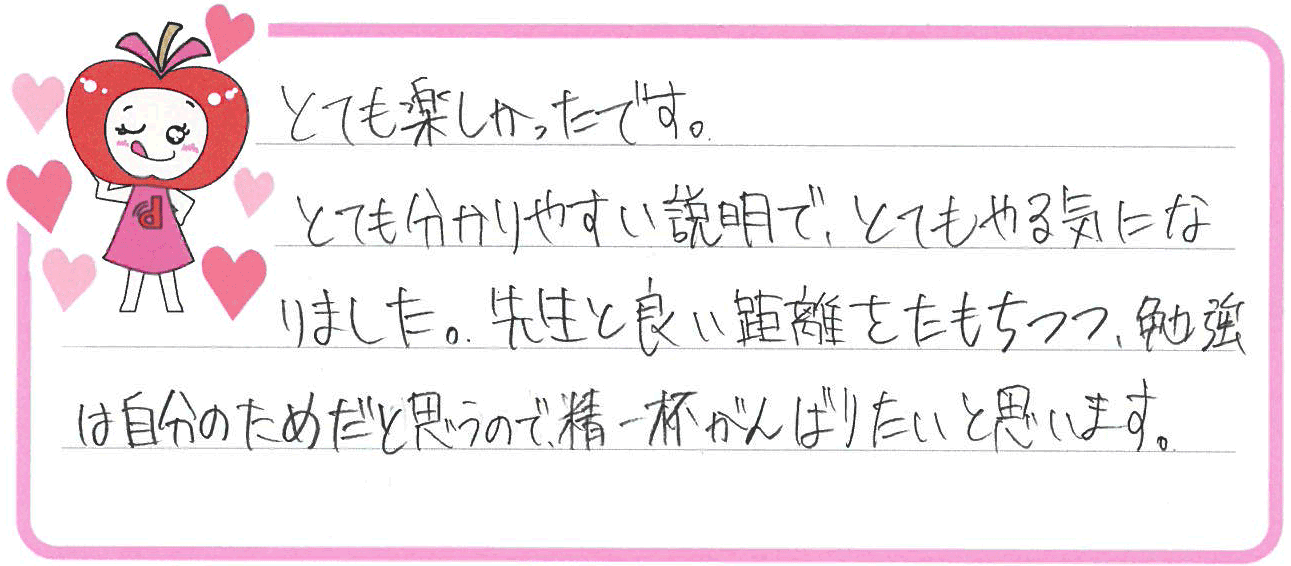 とても楽しかったです。
とても分かりやすい説明で、とてもやる気にな
りました。先生と良い距離をたもちつつ、勉強
は自分のためだと思うので、精一杯がんばりたいと思います。
d